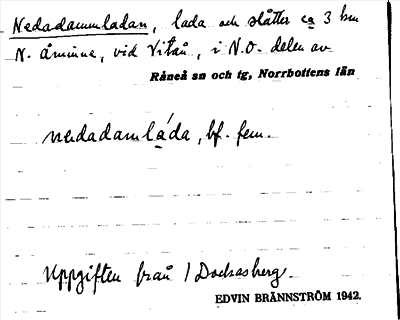 Nedadammladan, lada och slåtter ca 3 km
N. åminne, vid Vitån, i N.O. delen av
Råneå sn och tg, Norrbottens län
nedadamláda, bf. fem.
Uppgiften från Dockasberg.
EDVIN BRÄNNSTRÖM 1942.